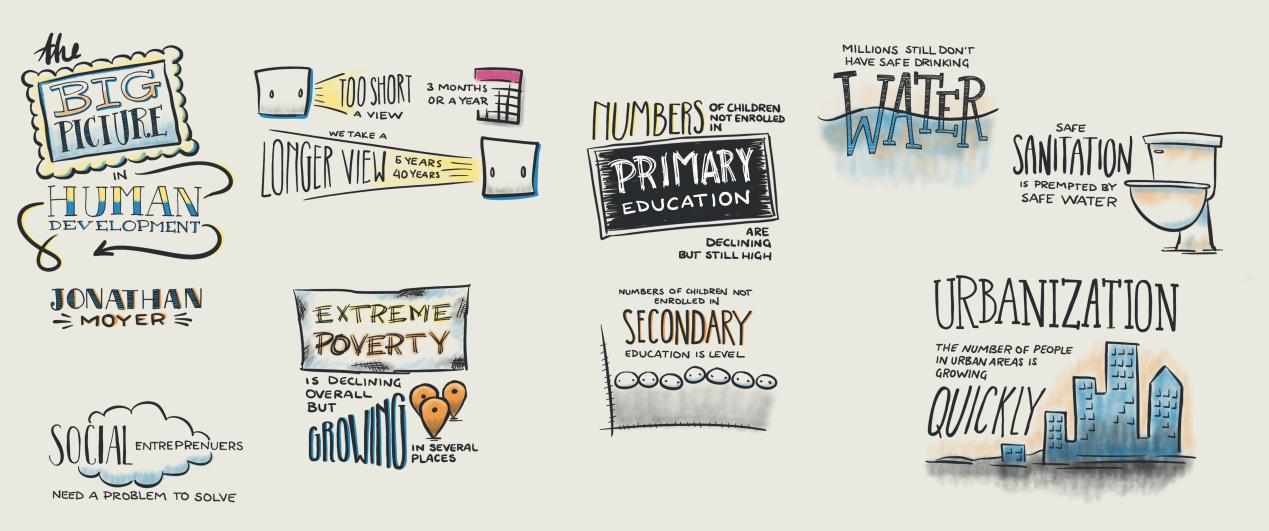 the
BIG
PICTURE
IN
HUMAN
DEVELOPMENT
JONATHAN
MOYER
SOCIAL ENTREPRENUERS
NEED A PROBLEM TO SOLVE
TOO SHORT
A VIEW
3 MONTHS
OR A YEAR
WE TAKE A
LONGER VIEW
5 YEARS
40 YEARS
EXTREME
POVERTY
IS DECLINING
OVERALL
BUT
GROWING
IN SEVERAL
PLACES
NUMBERS
OF CHILDREN
NOT ENROLLED
IN
PRIMARY
EDUCATION
ARE
DECLINING
BUT STILL HIGH
NUMBERS OF CHILDREN NOT
ENROLLED IN
SECONDARY
EDUCATION IS LEVEL
MILLIONS STILL DON'T
HAVE SAFE DRINKING
WATER
SAFE
SANITATION
IS PREMPTED BY
SAFE WATER
URBANIZATION
THE NUMBER OF PEOPLE
IN URBAN AREAS IS
GROWING
QUICKLY